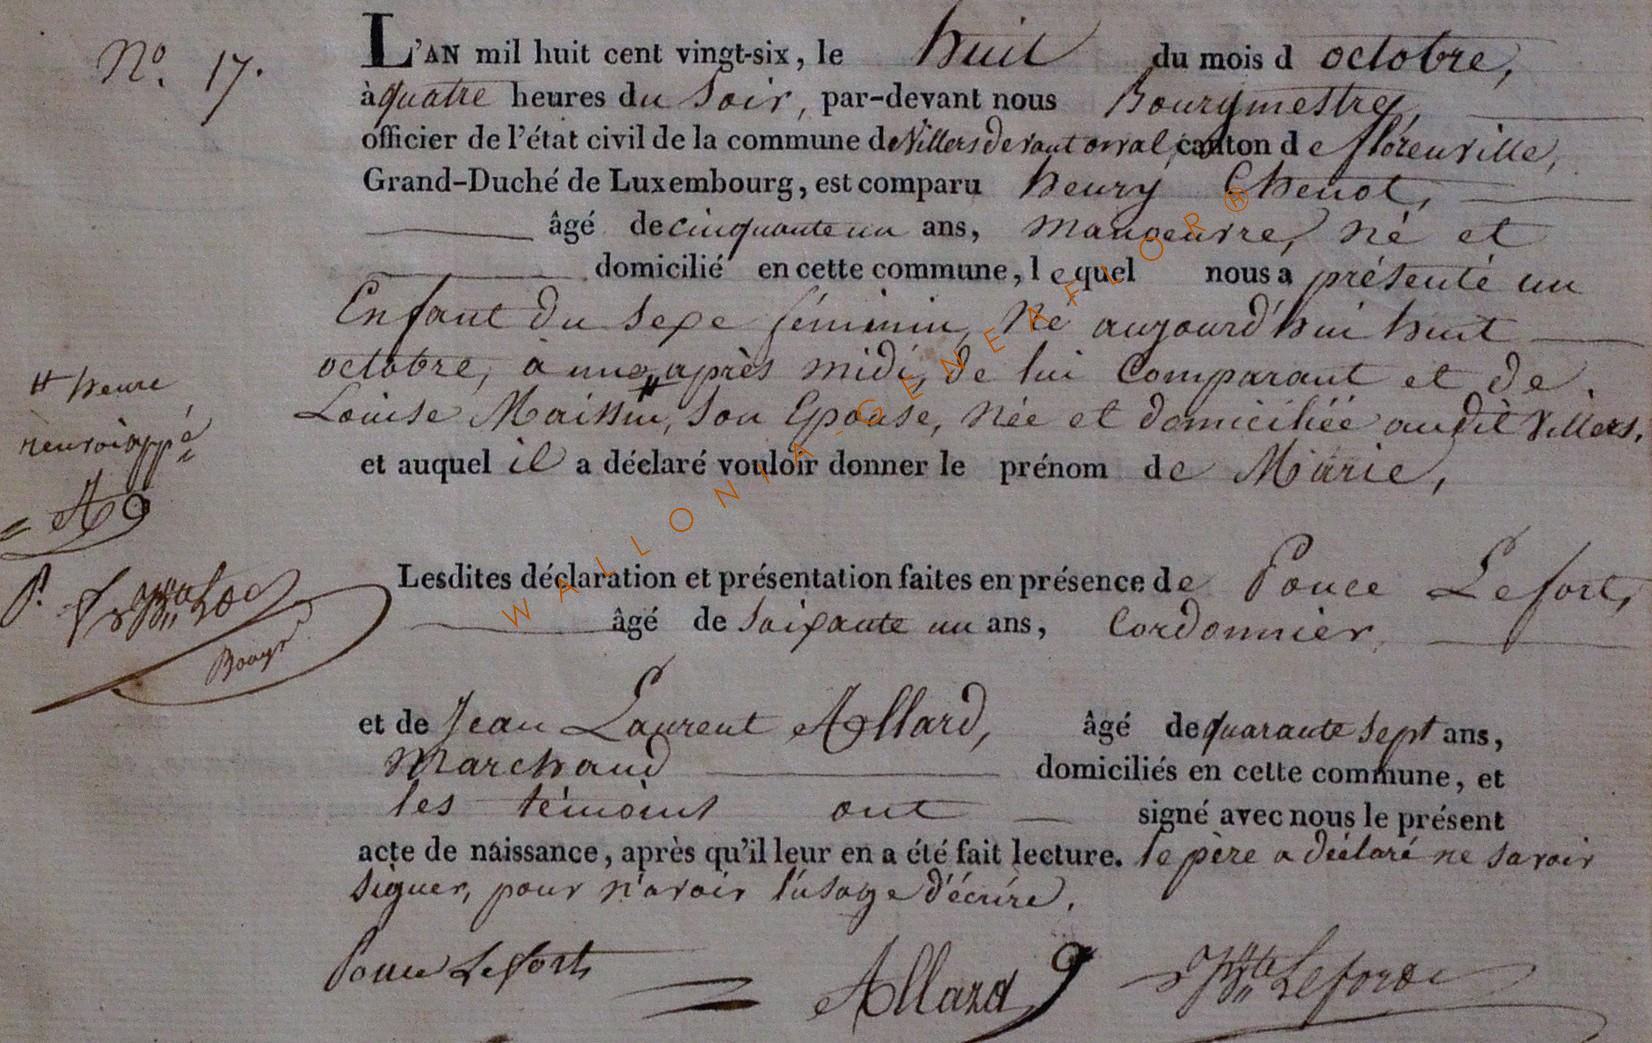 No. 17.
L'AN mil huit cent vingt-six, le huit du mois d octobre,
à quatre heures du soir, par-devant nous Bourgmestre,
officier de l'état civil de la commune de Villers devant orval, canton de florenville,
Grand-Duché de Luxembourg, est comparu henry Chenot,
âgé de cinquante un ans, manoeuvre, né et
domicilié en cette commune, lequel nous a présenté un
Enfant du sexe féminin, Né aujourd'hui huit
octobre, à une # après midi, de lui Comparant et de
Louise Maissin, son Epouse, née et domiciliée audit Villers,
et auquel il a déclaré vouloir donner le prénom de Marie,
# heure
renvoi app.é
A
P.
Bougr
Lesdites déclaration et présentation faites en présence de Ponce Lefort,
âgé de soixante un ans, Cordonnier,
et de Jean Laurent Allard, âgé de quarante sept ans,
Marchand domiciliés en cette commune, et
les témoins ont signé avec nous le présent
acte de naissance, après qu'il leur en a été fait lecture. le père a déclaré ne savoir
signer, pour n'avoir l'usage d'écrire.
Ponce Lefort
Allard
WALLONIA-GENEAFLOR®